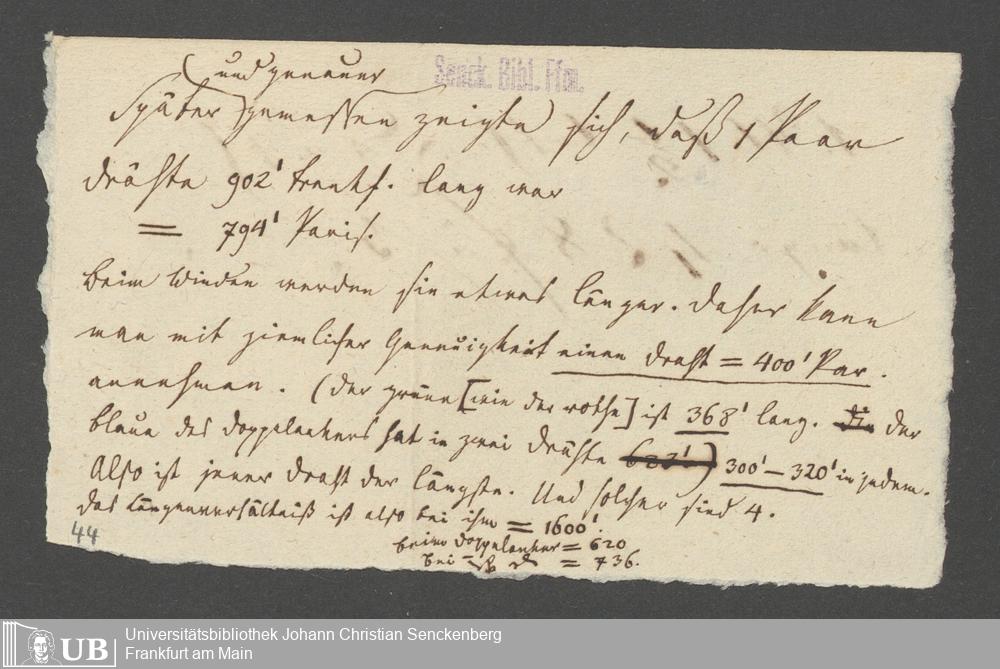 (und genauer
Senck. Bibl. Ffm.
Später gemessen zeigte sich, daß 1 Paar
Drähte 902' Frankf. lang war
= 794' Paris.
Beim Winden werden sie etwas länger. Daher kann
man mit ziemlicher Genauigkeit einen Draht = 400' Par.
annehmen. (Der grüne [wie der rothe] ist 368' lang. Die Der
blaue des Doppelankers hat in zwei Drähte 300' – 320' in jedem.
Also ist jener Draht der längste. Und solcher sind 4.
Das Längenverhältniß ist also bei ihm = 1600'.
beim Doppelanker = 620
bei = 736.
44
UB
Universitätsbibliothek Johann Christian Senckenberg
Frankfurt am Main